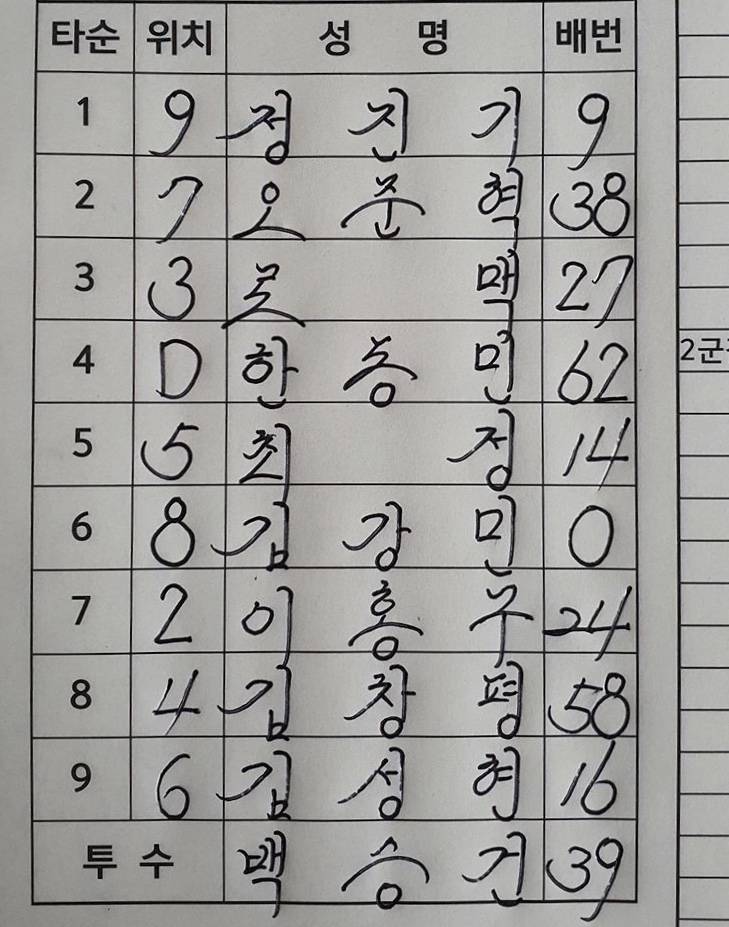 타순 위치 성 명 배번
1 9 정진기 9
2 7 오준혁 38
3 3 로맥 27
4 D 한동민 62
5 5 최정 14
6 8 김강민 0
7 2 이홍구 24
8 4 김창평 58
9 6 김성현 16
투수 백승건 39
2군